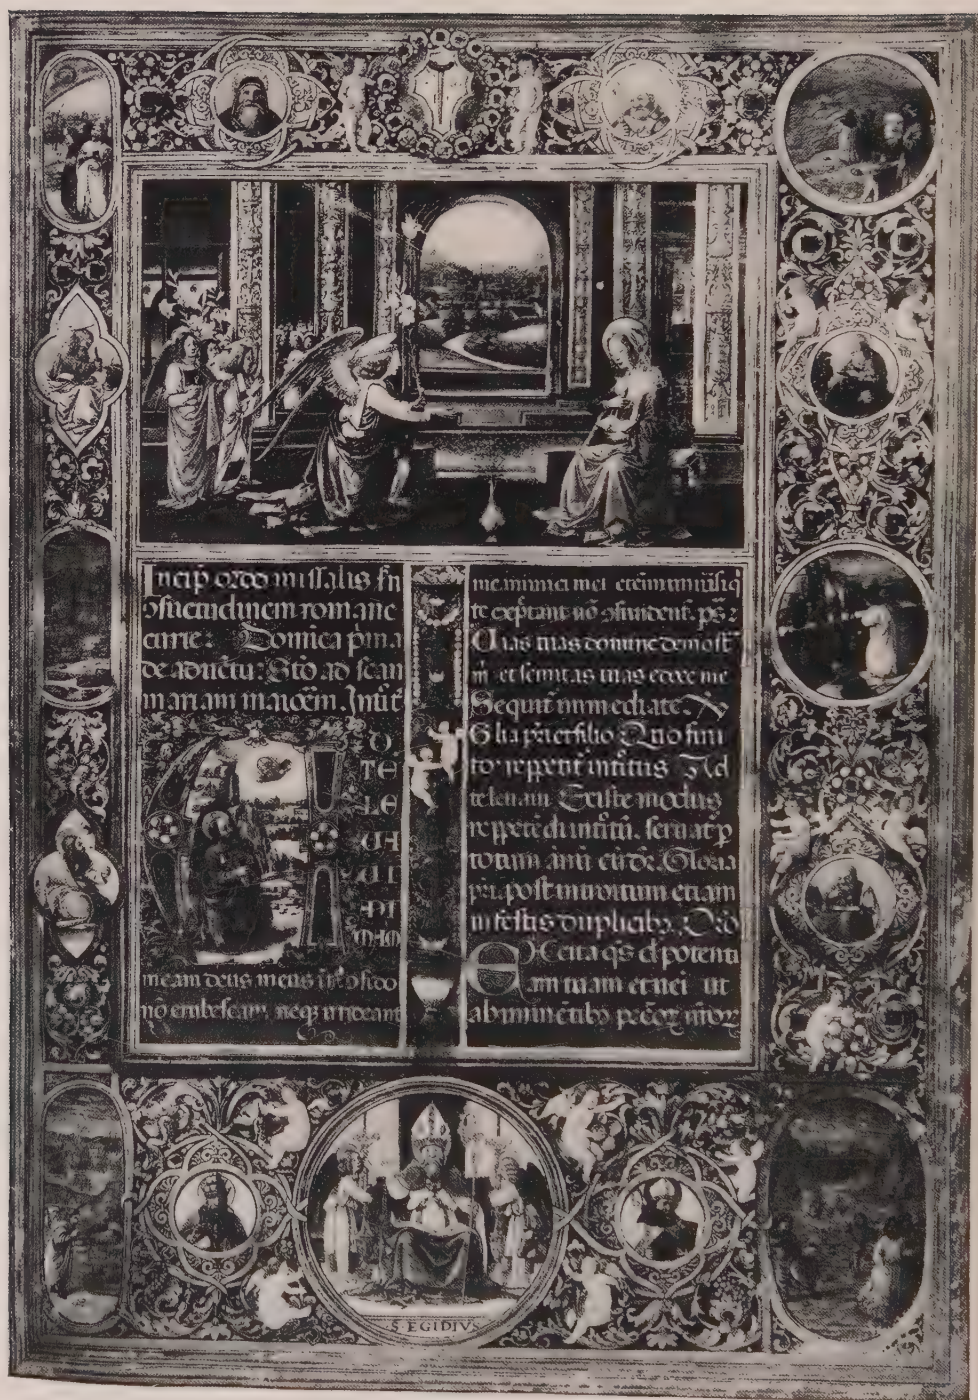 Incip ordo missalis sn
ɔsuetudinem romane
curie. Domica pma
de aduetu. Sto ad scam
mariam maiorem. Introit
AD
TE
LE
UA
UI
ANI
MAM
meam deus meus in te ɔfido
nō erubescam neq irrideant
me inimici mei etenim uniūsi q
te expectant nō ɔfundent. ps.
Uias tuas domine demost
m et semitas tuas edoce me
Sequit inmediate
Glia patri et filio Quo fini
to reppetit introitus Ad
te leuaui Et iste modus
reppetedi introitu. seruat p
totum anni circ Gloria
pri. post introitum etiam
in festis duplicib. Oro
Excita qs dñe potenti
am tuam et uei ut
ab minētib pccoꝝ nroꝝ
S. EGIDIVS